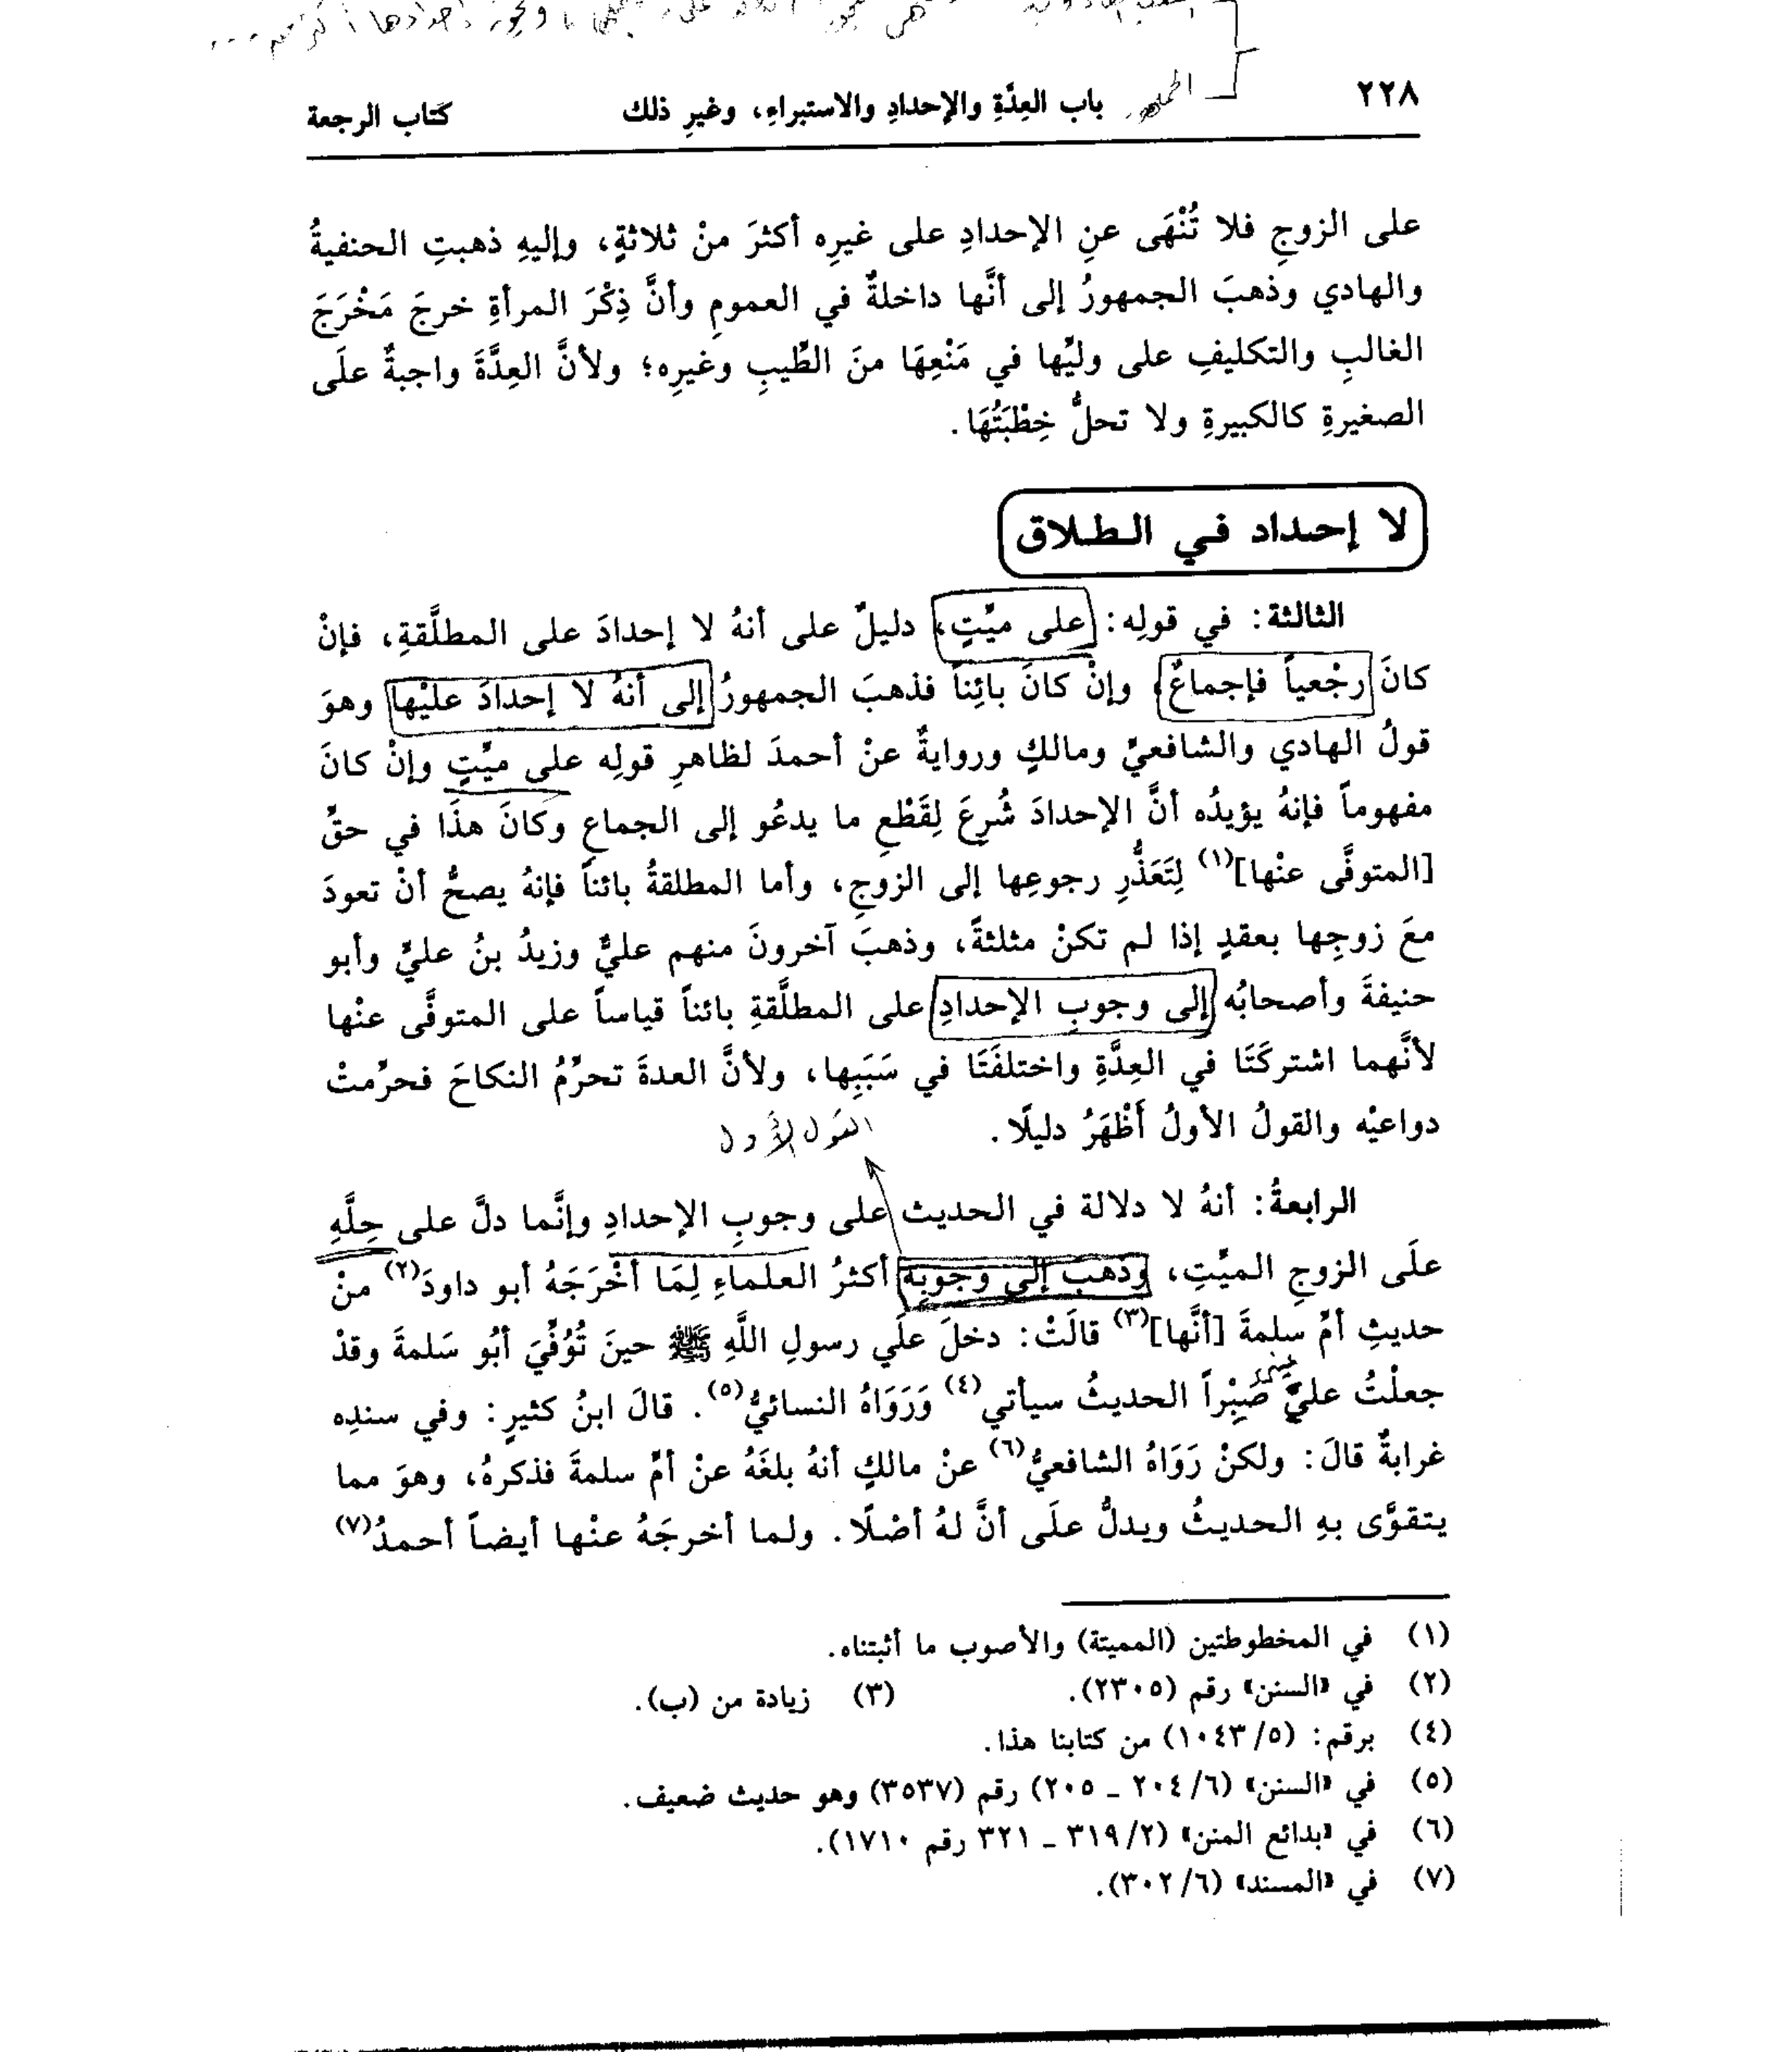 ٢٢٨ باب العِدَّةِ والإحدادِ والاستبراءِ، وغيرِ ذلك كتاب الرجعة
على الزوجِ فلا تُنْهَى عنِ الإحدادِ على غيرِه أكثرَ منْ ثلاثةٍ، وإليهِ ذهبتِ الحنفيةُ
والهادي وذهبَ الجمهورُ إلى أنَّها داخلةٌ في العمومِ وأنَّ ذِكْرَ المرأةِ خرجَ مَخْرَجَ
الغالبِ والتكليفِ على وليِّها في مَنْعِهَا منَ الطِّيبِ وغيرِه؛ ولأنَّ العِدَّةَ واجبةٌ علَى
الصغيرةِ كالكبيرةِ ولا تحلُّ خِطْبَتُهَا.
لا إحداد في الطلاق
الثالثة: في قولِه: على ميِّتٍ، دليلٌ على أنهُ لا إحدادَ على المطلَّقةِ، فإنْ
كانَ رجْعياً فإجماعٌ، وإنْ كانَ بائِناً فذهبَ الجمهورُ إلى أنهُ لا إحدادَ عليْها وهوَ
قولُ الهادي والشافعيِّ ومالكٍ وروايةٌ عنْ أحمدَ لظاهرِ قولِه على ميِّتٍ وإنْ كانَ
مفهوماً فإنهُ يؤيدُه أنَّ الإحدادَ شُرِعَ لِقَطْعِ ما يدعُو إلى الجماعِ وكانَ هذَا في حقِّ
[المتوفَّى عنْها](١) لِتَعَذُّرِ رجوعِها إلى الزوجِ، وأما المطلقةُ بائناً فإنهُ يصحُّ أنْ تعودَ
معَ زوجِها بعقدٍ إذا لم تكنْ مثلثةً، وذهبَ آخرونَ منهم عليٌّ وزيدُ بنُ عليٍّ وأبو
حنيفةَ وأصحابُه إلى وجوبِ الإحدادِ على المطلَّقةِ بائناً قياساً على المتوفَّى عنْها
لأنَّهما اشتركَتَا في العِدَّةِ واختلفَتَا في سَبَبِها، ولأنَّ العدةَ تحرِّمُ النكاحَ فحرِّمتْ
دواعيْه والقولُ الأولُ أَظْهَرُ دليلًا. القول الأول
الرابعةُ: أنهُ لا دلالة في الحديث على وجوبِ الإحدادِ وإنَّما دلَّ على حِلَّهِ
علَى الزوجِ الميِّتِ، وذهبَ إلى وجوبِهِ أكثرُ العلماءِ لِمَا أخْرَجَهُ أبو داودَ(٢) منْ
حديثِ أمِّ سلمةَ [أنَّها](٣) قالَتْ: دخلَ علَي رسولِ اللَّهِ ﷺ حينَ تُوُفِّيَ أبُو سَلمةَ وقدْ
جعلْتُ عليَّ صَبِرْاً الحديثُ سيأتي(٤) وَرَوَاهُ النسائيُّ(٥). قالَ ابنُ كثيرٍ: وفي سندِه
غرابةٌ قالَ: ولكنْ رَوَاهُ الشافعيُّ(٦) عنْ مالكٍ أنهُ بلغَهُ عنْ أمِّ سلمةَ فذكرهُ، وهوَ مما
يتقوَّى بهِ الحديثُ ويدلُّ علَى أنَّ لهُ أصْلًا. ولما أخرجَهُ عنْها أيضاً أحمدُ(٧)
(١) في المخطوطتين (المميتة) والأصوب ما أثبتناه.
(٢) في «السنن» رقم (٢٣٠٥). (٣) زيادة من (ب).
(٤) برقم: (١٠٤٣/٥) من كتابنا هذا.
(٥) في «السنن» (٢٠٤/٦ - ٢٠٥) رقم (٣٥٣٧) وهو حديث ضعيف.
(٦) في «بدائع المنن» (٣١٩/٢ - ٣٢١ رقم ١٧١٠).
(٧) في «المسند» (٣٠٢/٦).